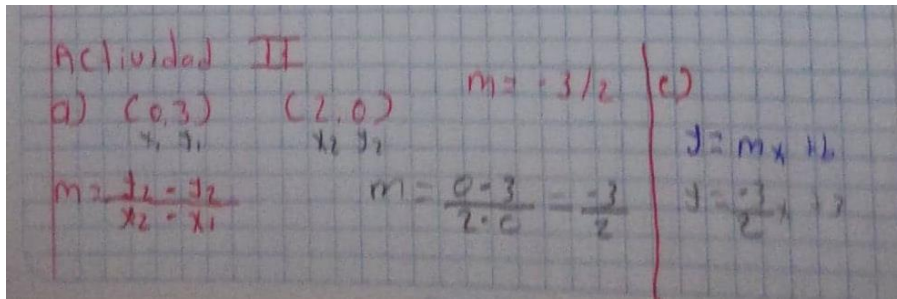 Actividad II
a) (0,3) (2,0) m= -3/2
x₁ y₁ x₂ y₂
m= y₂ - y₂ / x₂ - x₁ m= 0-3 / 2-0 = -3 / 2
c)
y= mx+b
y= -3/2 x +3